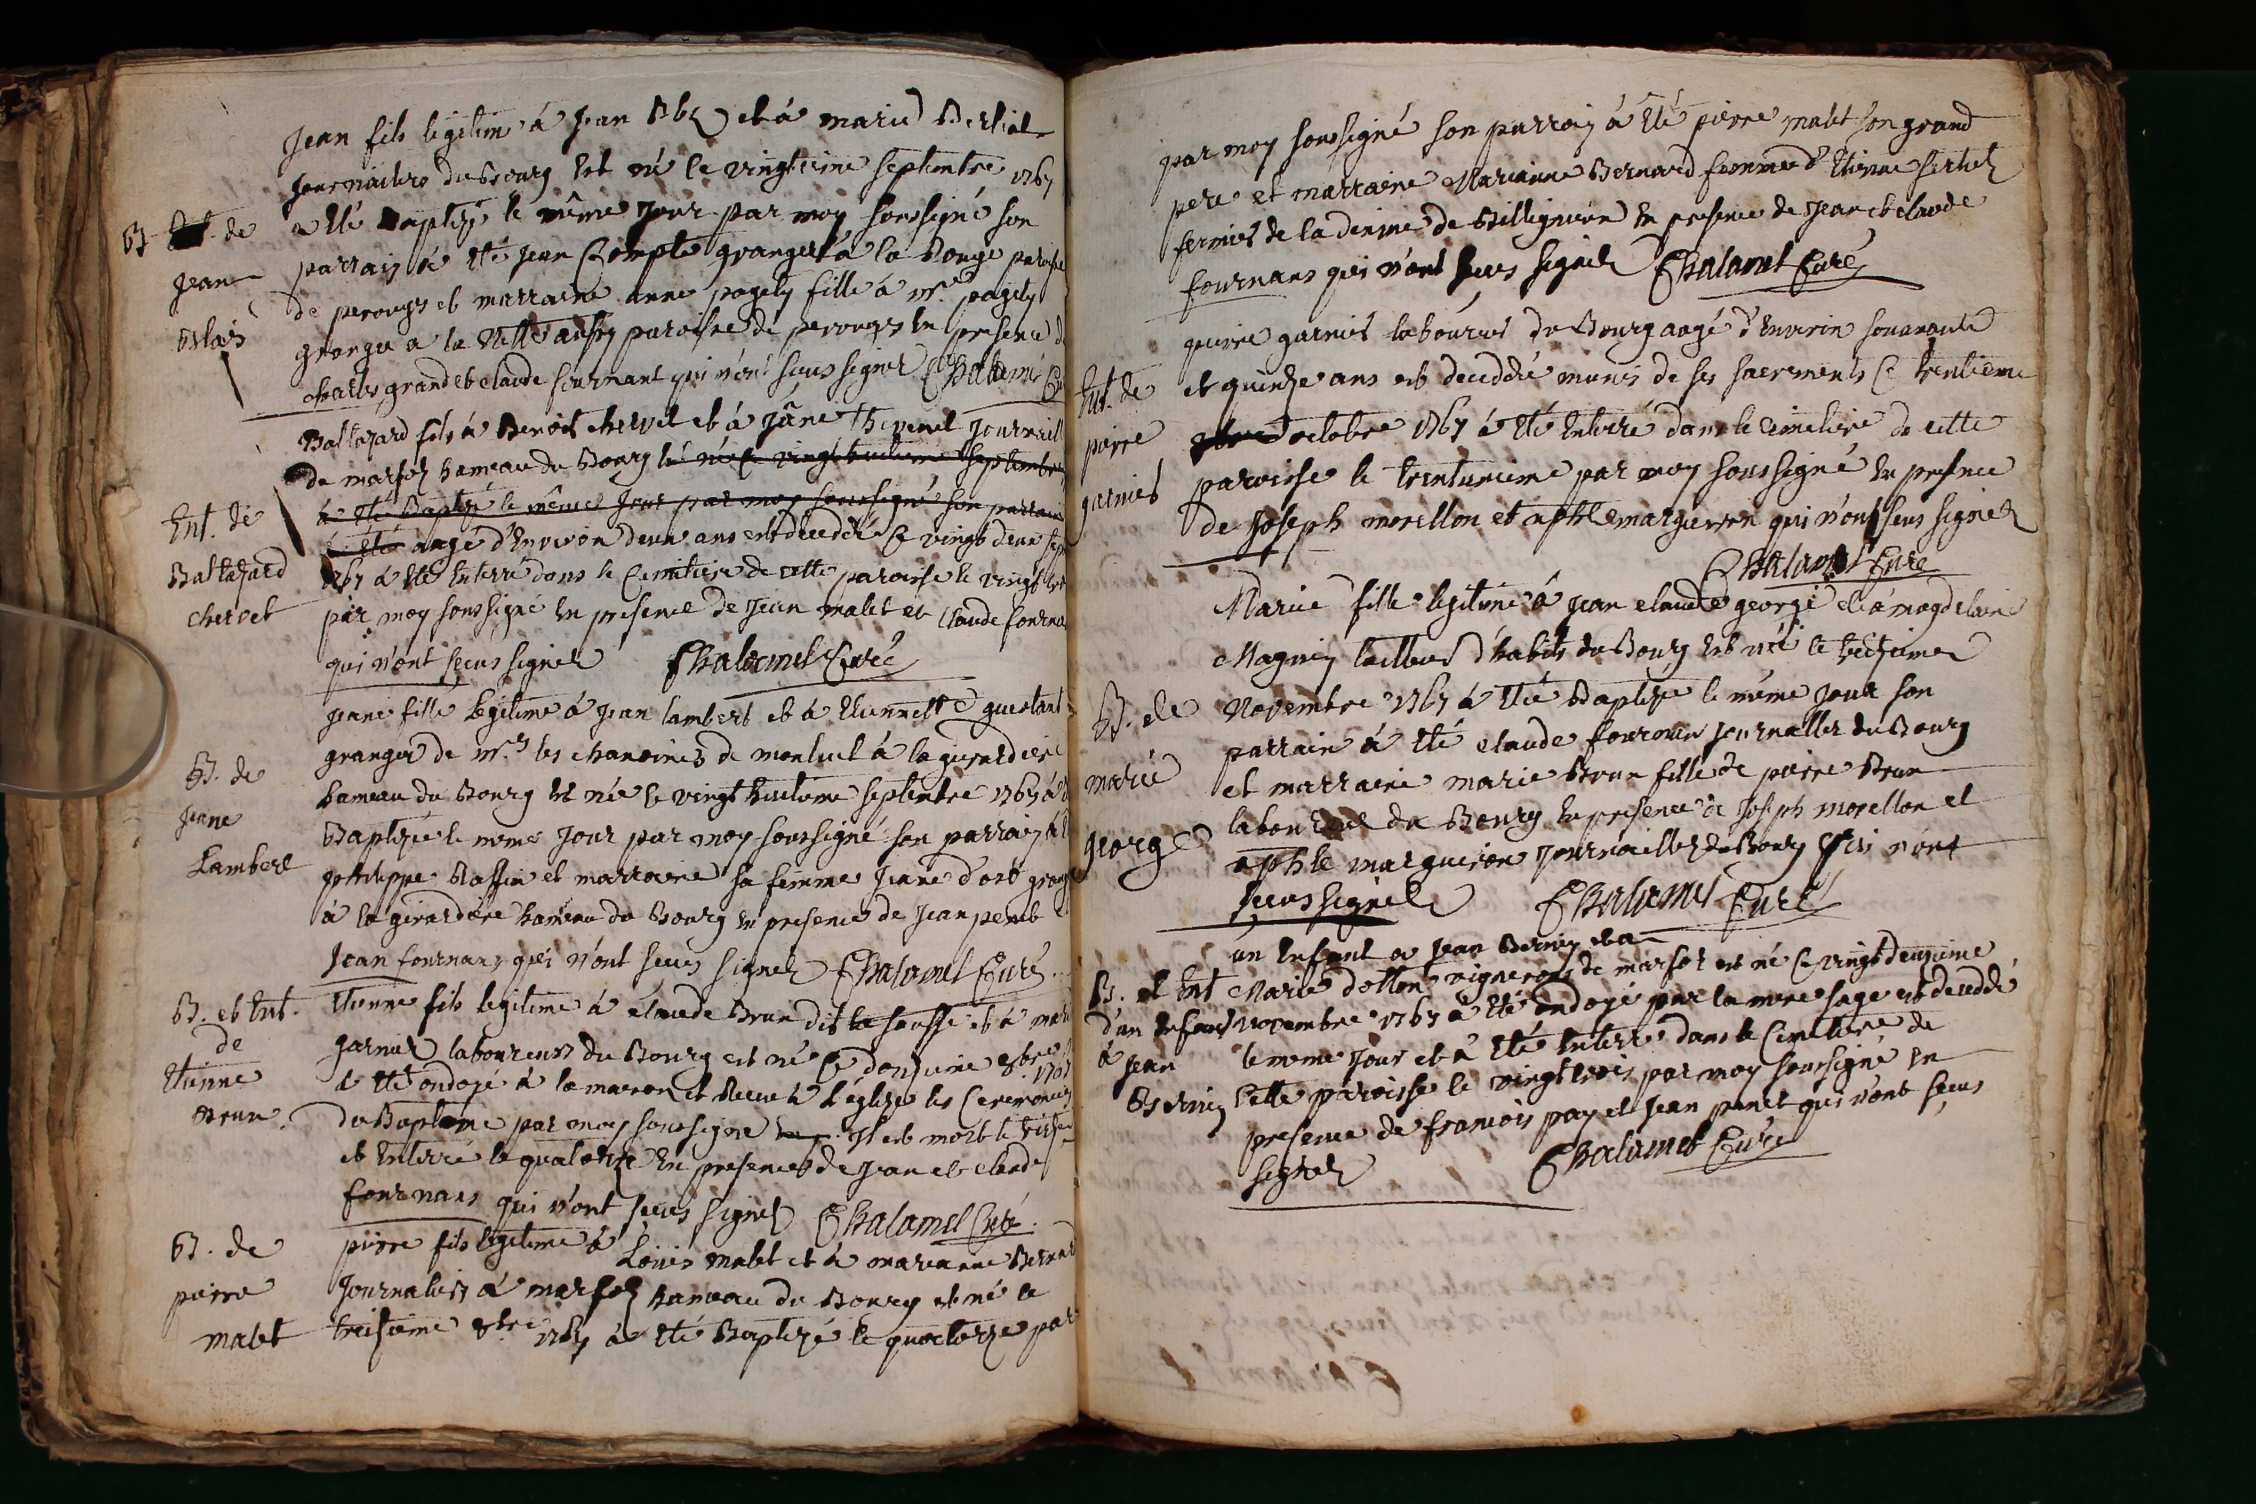 Jean fils legitime à Jean et à marie
Journaliers du Bourg est né le vingtieme septembre 1767
B. de
a été Baptizé le même Jour par moy soussigné son
Jean
parrain à été Jean Compte granger à la Rouge paroisse
de perouges et marraine anne pagety fille à Mr. pagety
Blais
granger a la paroisse de perouges en presence de
charles grand et claude fournant qui n'ont sceus signer Chalamel Curé
Baltazard fils à Benoit chervet et à Jâne thevenet Journaill
de marfoz hameau du Bourg est né le vingt huitieme septembre
à été Baptizé le même Jour par moy soussigné son parrain
à été aagé d'Environ deux ans est deceddé Ce vingt deux sept
Ent. de
Baltazard
1767 à été Enterré dans le Cimetiere de cette paroisse le vingt trois
chervet
par moy soussigné En presence de Jean malet et Claude fourna
qui n'ont sceus signer Chalamel Curé
Jeane fille legitime à Jean lambert et à Etiennette guestant
granger de Mrs. les chanoines de monluel à la girardiere
B. de
hameau du Bourg est née le vingt huitieme septembre 1767 à été
Jeane
Baptizée le même Jour par moy soussigné son parrain à été
Lambert
philippe Raffin et marraine sa femme Jeane d'ost grang
à la girardiere hameau du Bourg en presence de Jean penet et
Jean fournans qui n'ont sceus signer Chalamel Curé
B. et Ent.
Etienne fils legitime à claude Brun dit la souffe et à marie
de
garnier laboureurs du Bourg est né Ce douzieme 8bre 1767
Etienne
à été ondoyé à la maison et Receu à l'églize les Ceremonies
Brun.
du Bapteme par moy soussigné Il est mort le treize
et Enterré le quatorze En presence de Jean et claude
fournans qui n'ont sceus signer Chalamel Curé
B. de
pierre fils legitime à Loüis malet et à marianne Bernard
pierre
Journaliers à marfoz hameau du Bourg est né le
malet
treisieme 8bre 1767 à été Baptizé le quatorze par
par moy soussigné son parrain à êté pierre malet son grand
pere et marraine Marianne Bernard femme d'Etienne
fermier de la denime de Billignieux En presence de Jean et claude
fournans qui n'ont sceus signer Chalamel Curé
pierre garnier laboureur du Bourg aagé d'Environ souxante
Ent. de
et quinze ans est deceddé munis de ses sacrements Ce trentieme
pierre
octobre 1767 à été Enterré dans le cimetiere de cette
garnier
paroisse le trentunieme par moy soussigné En presence
de Joseph morellon et aphle margueron qui n'ont sceus signer
Chalamel Curé
Marie fille legitime à Jean claude george et à magdelaine
Magnin tailleur d'habits du Bourg est née le treizieme
B. de
Novembre 1767 à été Baptizée le même jour son
parrain à été claude fournier Journallier du Bourg
marie
et marraine marie Brun fille de pierre Brun
laboureur du Bourg En presence de Joseph morellon et
george
aphle margueron Journailler du Bourg qui n'ont
sceus signer Chalamel Curé
un Enfant a Jean Bernin et a
B. et Ent
Marie dotton vignerons de marfoz est né Ce vingt deuxieme
d'un Enfant
novembre 1767 à été ondoyé par la mere sage est deceddé
à
Jean
le meme jour et à été Enterré dans le Cimetiere de
Bernin
cette paroisse le vingt trois par moy soussigné En
presence de francois pay et Jean penet qui n'ont sceus
signer Chalamel Curé